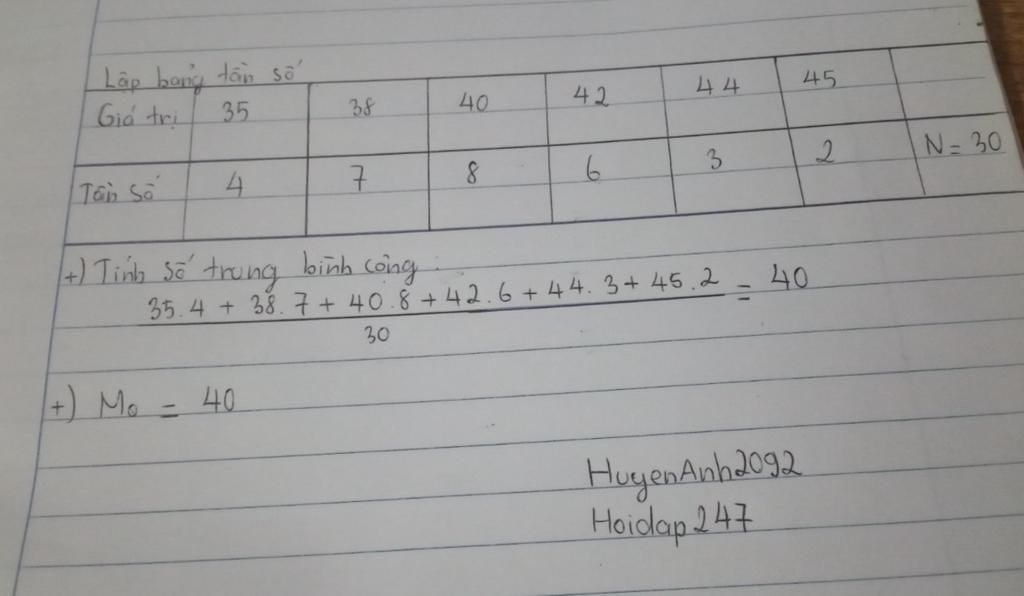 Lập bảng tần số
Giá trị 35 38 40 42 44 45
Tần số 4 7 8 6 3 2 N = 30
+) Tính số trung bình cộng :
35.4 + 38.7 + 40.8 + 42.6 + 44.3 + 45.2 = 40
30
+) Mo = 40
HuyenAnh2092
Hoidap247